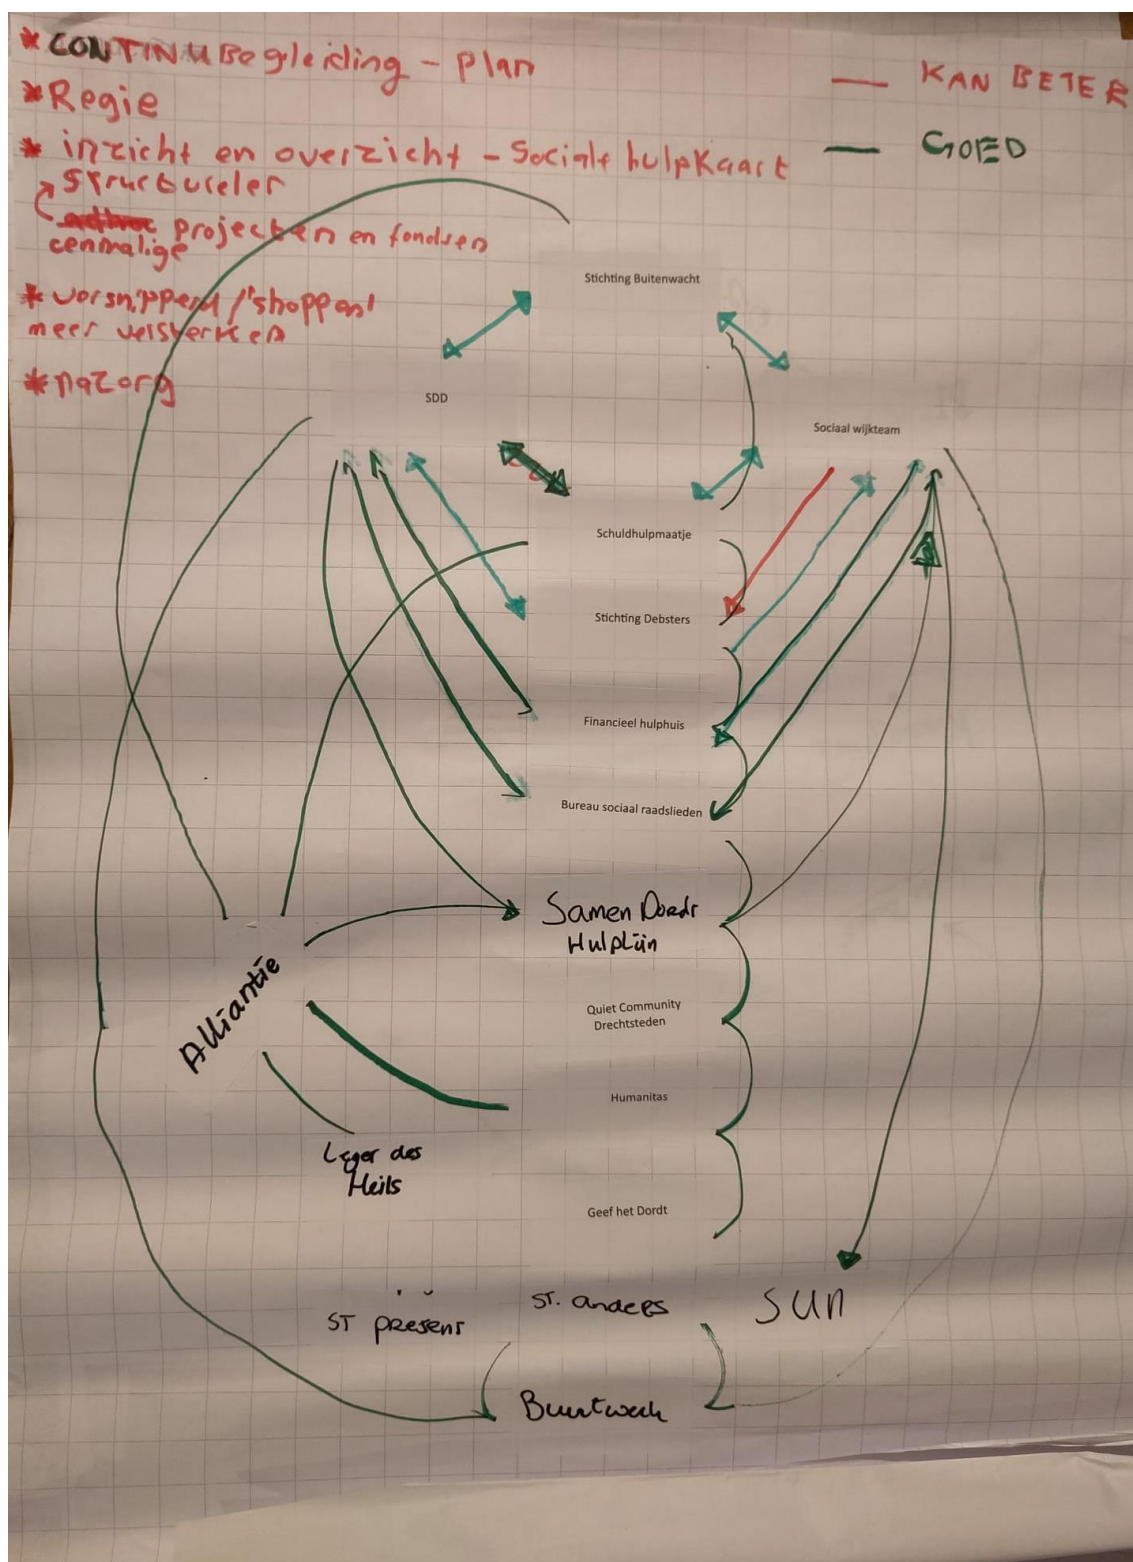 * CONTINU Begleiding - Plan
* Regie
* inzicht en overzicht - Sociale hulpkaart
structureler
adhoc projecten en fondsen
eenmalige
* versnipperd / 'shoppen'
meer versterken
* nazorg
KAN BETER
GOED
Stichting Buitenwacht
SDD
Sociaal wijkteam
Schuldhulpmaatje
Stichting Debsters
Financieel hulphuis
Bureau sociaal raadslieden
Samen Dordt
Hulplijn
Alliantie
Quiet Community
Drechtsteden
Humanitas
Leger des
Heils
Geef het Dordt
ST presens
ST. anders
SUN
Buurtwerk